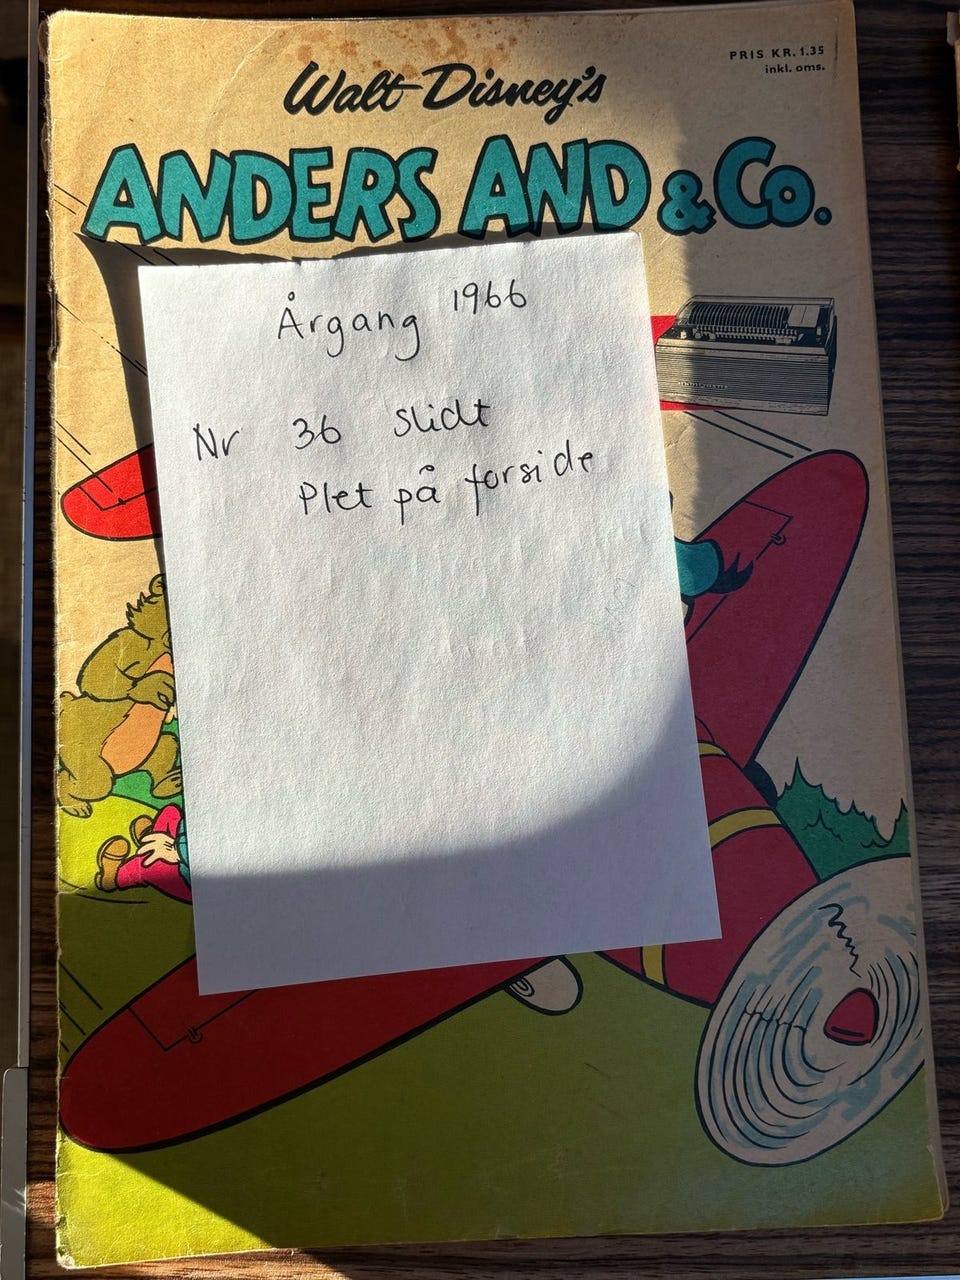 PRIS KR. 1.35
inkl. oms.
Walt Disney's
ANDERS AND & Co.
Årgang 1966
Nr 36 Slidt
Plet på forside